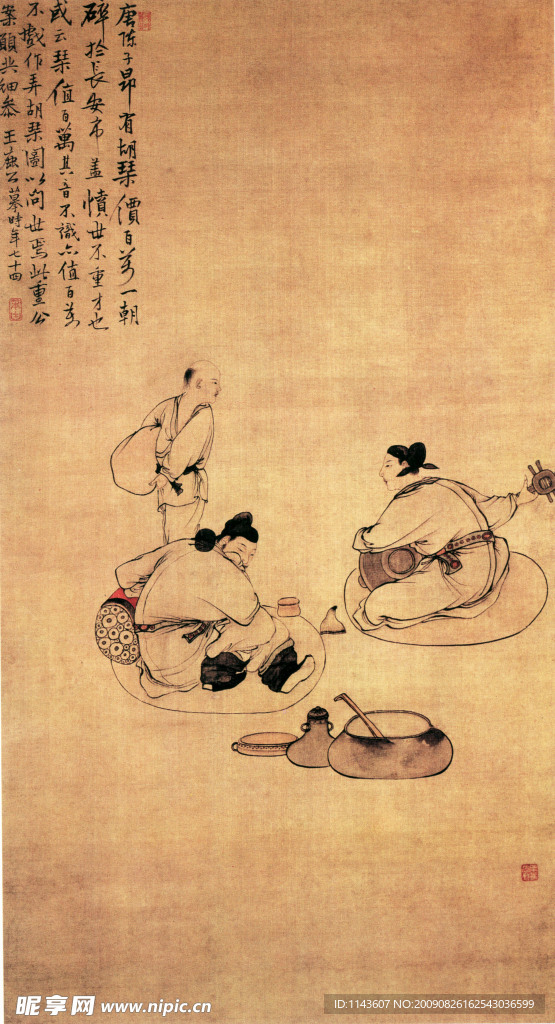 唐陈子昂有胡琹價百万一朝
碎於長安市盖憤世不重才也
或云琹值百萬其音不識亦值百万
不㦸作弄胡琹圖以问世焉此重公
案願共细参 王
摹時年七十四
昵享网 www.nipic.cn
ID:1143607 NO:20090826162543036599